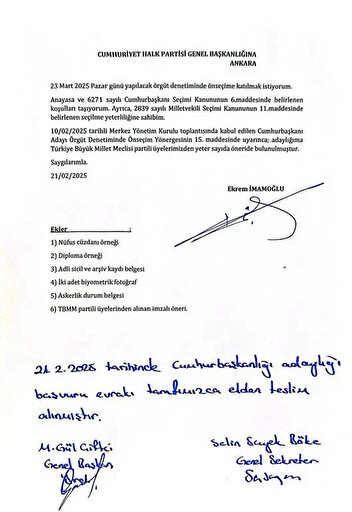 CUMHURİYET HALK PARTİSİ GENEL BAŞKANLIĞINA
ANKARA
23 Mart 2025 Pazar günü yapılacak örgüt denetiminde önseçime katılmak istiyorum.
Anayasa ve 6271 sayılı Cumhurbaşkanı Seçimi Kanununun 6.maddesinde belirlenen
koşulları taşıyorum. Ayrıca, 2839 sayılı Milletvekili Seçimi Kanununun 11.maddesinde
belirlenen seçilme yeterliliğine sahibim.
10/02/2025 tarihli Merkez Yönetim Kurulu toplantısında kabul edilen Cumhurbaşkanı
Adayı Örgüt Denetiminde Önseçim Yönergesinin 15. maddesinde uyarınca; adaylığıma
Türkiye Büyük Millet Meclisi partili üyelerimizden yeter sayıda öneride bulunulmuştur.
Saygılarımla.
21/02/2025
Ekrem İMAMOĞLU
Ekler
1) Nüfus cüzdanı örneği
2) Diploma örneği
3) Adli sicil ve arşiv kaydı belgesi
4) İki adet biyometrik fotoğraf
5) Askerlik durum belgesi
6) TBMM partili üyelerinden alınan imzalı öneri.
21.2.2025 tarihinde Cumhurbaşkanlığı adaylığı
başvuru evrakı tarafımızca elden teslim
alınmıştır.
M. Gül Çiftci
Genel Başkan
Selin Sayek Böke
Genel Sekreter